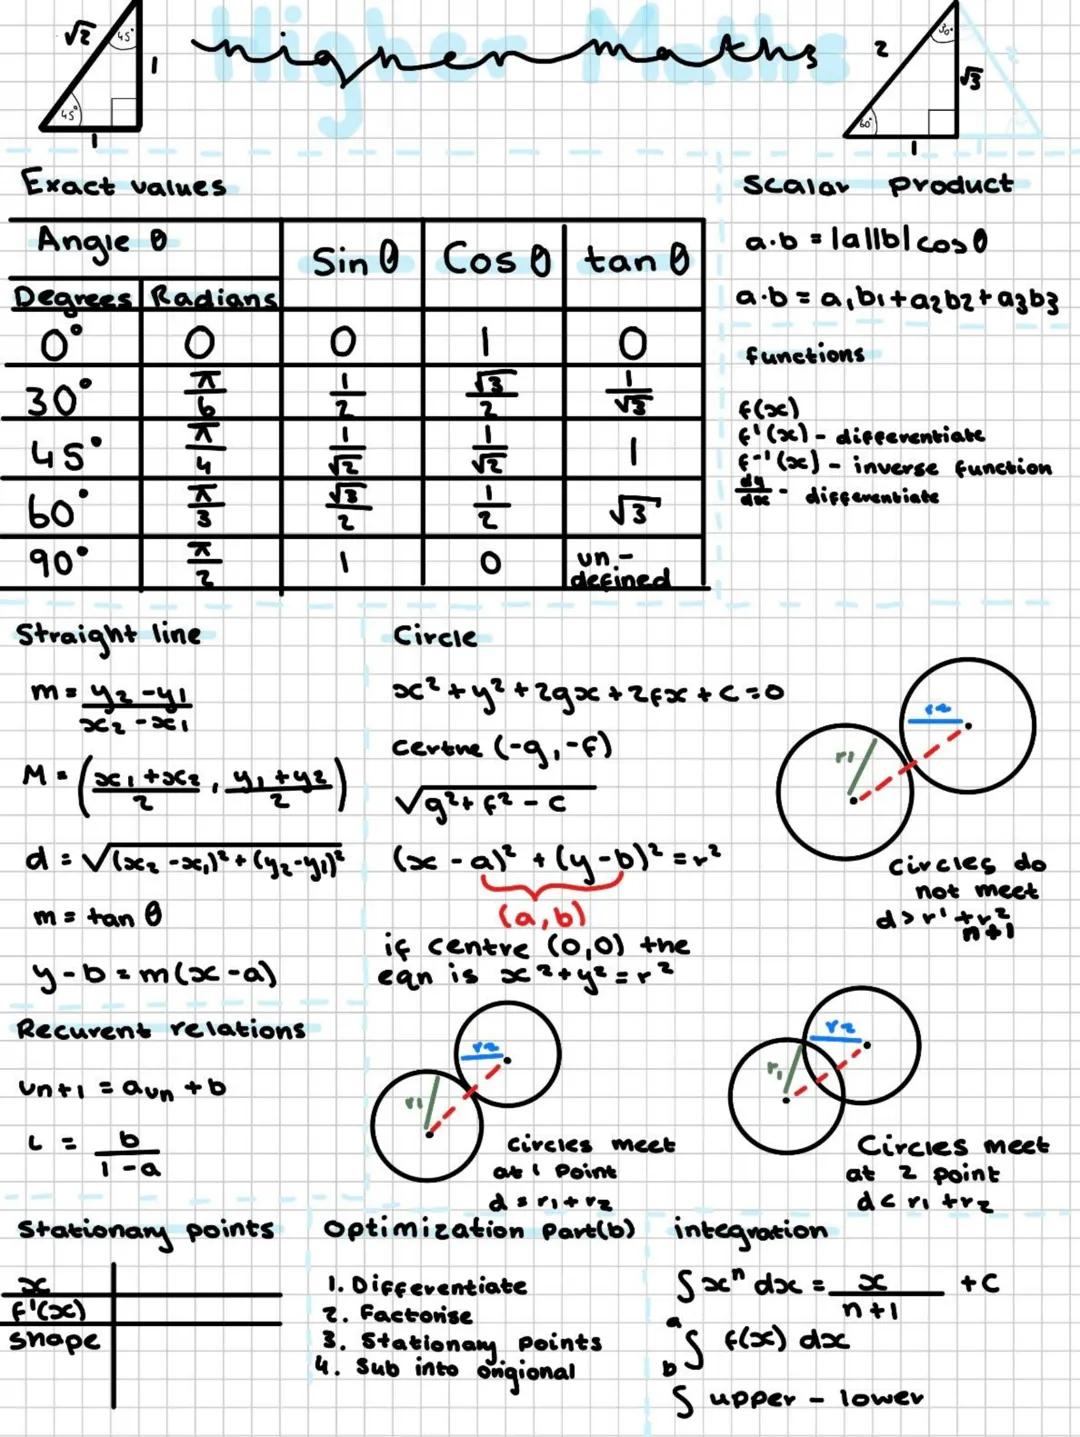 Higher Maths
higher maths
√2
45°
1
45°
1
2
30°
√3
60°
1
Exact values
Angle θ
Sin θ
Cos θ
tan θ
Degrees
Radians
0°
0
0
1
0
30°
π/6
1/2
√3/2
1/√3
45°
π/4
1/√2
1/√2
1
60°
π/3
√3/2
1/2
√3
90°
π/2
1
0
un-
defined
Scalar product
a.b = |a||b| cos θ
a.b = a₁b₁ + a₂b₂ + a₃b₃
functions
f(x)
f'(x) - differentiate
f⁻¹(x) - inverse function
dy/dx - differentiate
Straight line
m = (y₂ - y₁)/(x₂ - x₁)
M = ((x₁ + x₂)/2 , (y₁ + y₂)/2)
d = √(x₂ - x₁)² + (y₂ - y₁)²
m = tan θ
y - b = m(x - a)
Circle
x² + y² + 2gx + 2fx + c = 0
Certne (-g, -f)
√g² + f² - c
(x - a)² + (y - b)² = r²
(a, b)
if centre (0,0) the
eqn is x² + y² = r²
r1
r2
Circles do
not meet
d > r¹ + r²
n+1
Recurent relations
un+1 = aun + b
L = b/(1 - a)
r1
r2
Circles meet
at 1 Point
d = r₁ + r₂
r₁
r2
Circles meet
at 2 point
d < r₁ + r₂
Stationary points
x
f'(x)
shape
Optimization Part(b)
1. Differentiate
2. Factorise
3. Stationary points
4. Sub into origional
integration
∫ xⁿ dx = x/(n+1) + C
a
∫ f(x) dx
b
∫ upper - lower